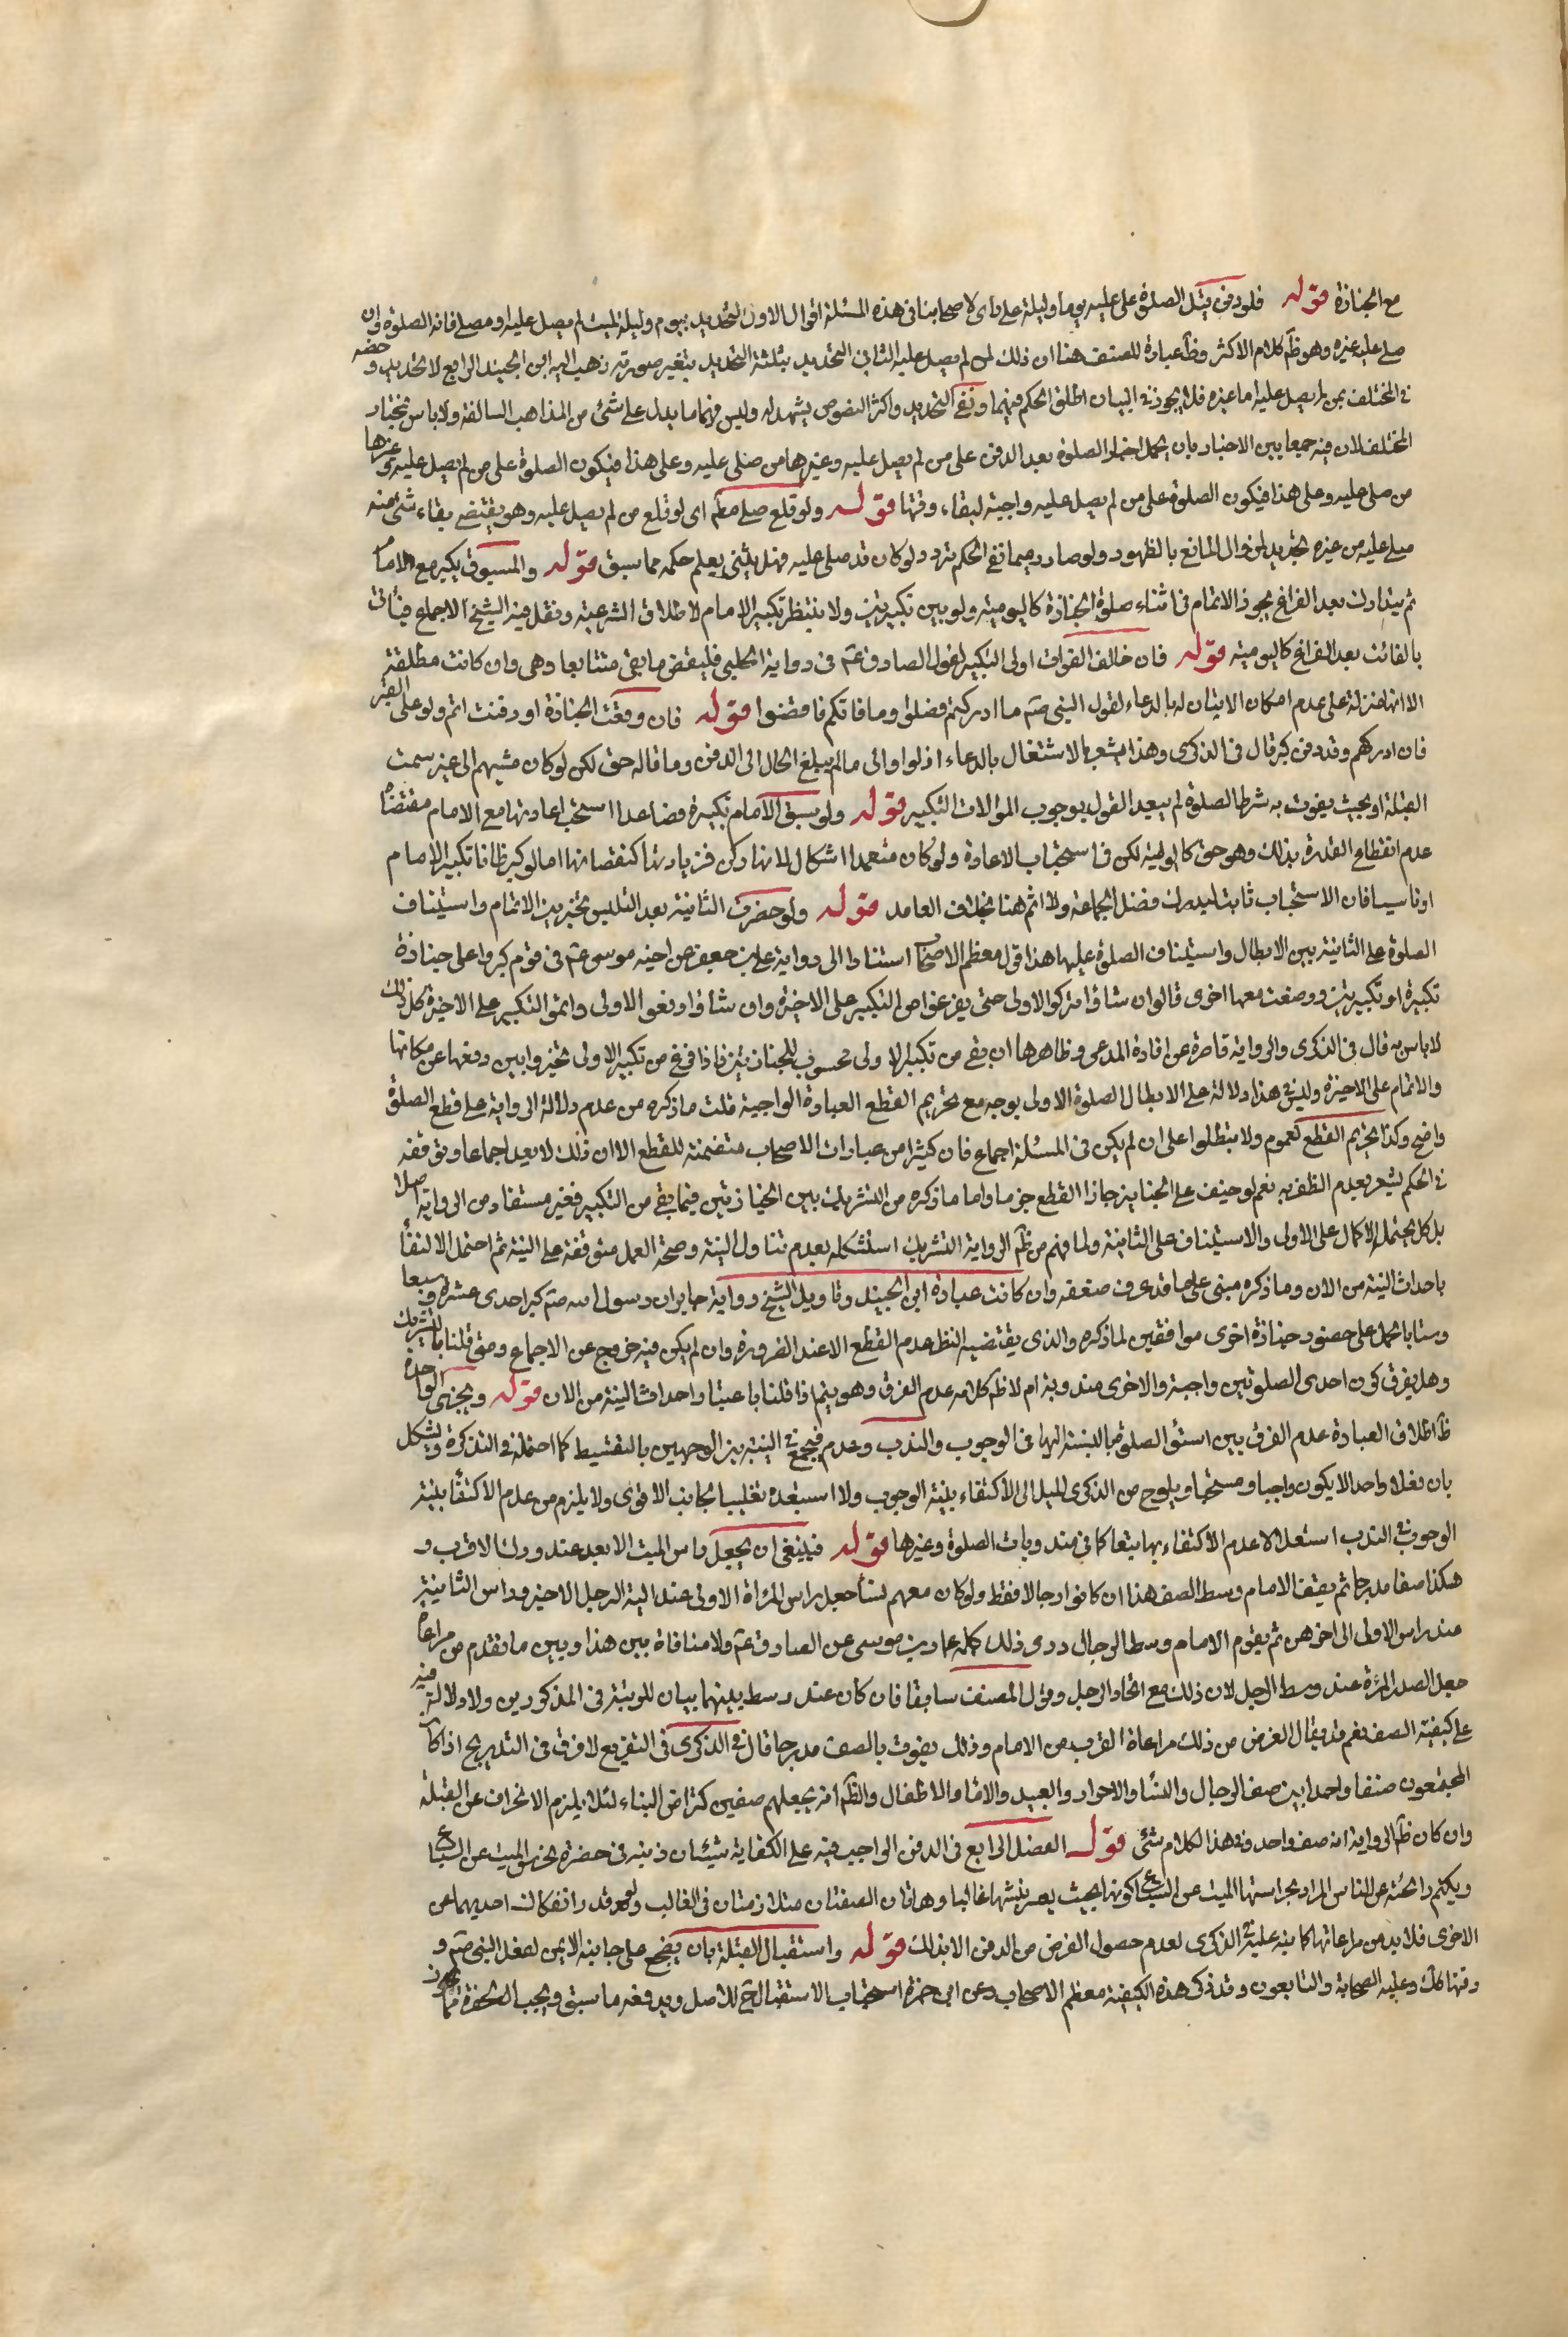 مع الجنازة قوله فلو دفن قبل الصلوة على عليه يوما وليلة على راى لاصحابنا فى هذه المسئلة اقوال الاول التحديد بيوم وليلة لميت لم يصل عليه او مصل فاته الصلوة وان
صلى عليه غيره وهو ظم كلام الاكثر وظ عبارة المصنف هنا ان ذلك لمن لم يصل عليه الثانى التحديد بثلثة التحديد بتغير صورته ذهب اليه ابن الجنيد الرابع لا تحديد وخصه
فى المختلف بمن لم يصل عليه اما غيره فلا يجوز فى البيان اطلق الحكم فيهما ونفى التحديد واكثر النصوص يشهد له وليس فيها ما يدل على شئ من المذاهب السالفة ولا باس بمختار
المختلف لان فيه جمعا بين الاخبار بان يحمل اخبار الصلوة بعد الدفن على من لم يصل عليه وغيرها من صلى عليه وعلى هذا فيكون الصلوة على من لم يصل عليه وغيرها
من صلى عليه وعلى هذا فيكون الصلوة على من لم يصل عليه واجبة لبقاء وقتها قوله ولو قلع صلى مطم اى لو قلع من لم يصل عليه وهو يقتضى بقاء شئ منه
صلى عليه من غيره تحديد لزوال المانع بالظهور ولو صار رميما ففى الحكم تردد ولو كان قد صلى عليه فهل يثنى يعلم حكمه مما سبق قوله والمسبوق يكبر مع الامام
ثم يتدارك بعد الفراغ يجوز الاتمام فى اثناء صلوة الجنازة كاليومية ولو بين تكبيرتين ولا ينتظر تكبير الامام لاطلاق الشرعية ونقل فيه الشيخ الاجماع فيأتى
بالفائت بعد الفراغ كاليومية قوله فان خالف الفوات اولى التكبير لقول الصادق عم فى رواية الحلبى فليقض ما بقى متتابعا وهى وان كانت مطلقة
الا انها منزلة على عدم امكان الاتيان له بالدعاء لقول النبى صم ما ادركتم فصلوا وما فاتكم فاقضوا قوله فان رفعت الجنازة او دفنت اتم ولو على القبر
فان ادركهم وقد دفن كبر قال فى الذكرى وهذا يشعر بالاشتغال بالدعاء اذ لو والى مالم يبلغ الحال الى الدفن وما قاله حق لكن لو كان مشيهم الى غير سمت
القبلة او بحيث يفوت به شرط الصلوة لم يبعد القول بوجوب الموالات التكبير قوله ولو سبق الامام بتكبيرة فصاعدا استحب اعادتها مع الامام مقتضاه
عدم انقطاع القدرة بذلك وهو حق كاليومية لكن فى استحباب الاعادة ولو كان متعمدا اشكال لانها ركن فزيادتها كنقصانها اما لو كبر ظانا تكبير الامام
او ناسيا فان الاستحباب ثابت ليدرك فضل الجماعة ولا اثم هنا بخلاف العامد قوله ولو حضرت الثانية بعد التلبس تخير بين الاتمام واستيناف
الصلوة على الثانية بين الابطال واستيناف الصلوة عليها هذا قول معظم الاصحاب استنادا الى رواية على بن جعفر عن اخيه موسى عم فى قوم كبروا على جنازة
تكبيرة او تكبيرتين ووضعت معها اخرى قال وان شاؤا تركوا الاولى حتى يفرغوا من التكبير على الاخيرة وان شاؤا رفعوا الاولى واتموا التكبير على الاخيرة كل ذلك
لا باس به قال فى الذكرى والرواية قاصرة عن افادة المدعى وظاهرها ان ما بقى من تكبير الاولى محسوب للجنازتين فاذا فرغ من تكبير الاولى تخيروا بين رفعها عن مكانها
والاتمام على الاخيرة وليس فى هذا دلالة على الابطال الصلوة الاولى بوجه مع تحريم القطع العبادة الواجبة قلت ما ذكره من عدم دلالة الرواية على قطع الصلوة
واضح وكذا تحريم القطع لعموم ولا تبطلوا على ان لم يكن فى المسئلة اجماع فان كثيرا من عبارات الاصحاب متضمنة للقطع الا ان ذلك لا يعد اجماعا وتوقفه
فى الحكم يشعر بعدم الظفر به نعم لو خيف على الجنايز جاز القطع جزما واما ما ذكره من التشريك بين الجنازتين فيما بقى من التكبير فغير مستفاد من الرواية اصلا
بل كل يحتمل الاكمال على الاولى والاستيناف على الثانية ولما فهم من ظم الرواية التشريك استشكله بعدم تناول النية وصحة العمل متوقفة على النية ثم احتمل الاكتفأ
باحداث النية من الان وما ذكره مبنى على ما قد عرف ضعفه وان كانت عبارة ابن الجنيد وتاويل الشيخ رواية جابر ان رسول الله صم كبر احدى عشرة وسبعا
وستا باحمل على حضور جنازة اخرى موافقين لما ذكره والذى يقتضيه النظر عدم القطع الا عند الضرورة وان لم يكن فيه خروج عن الاجماع ومتى قلنا بالتشريك
وهل يفرق كون احدى الصلوتين واجبة والاخرى مندوبة ام لا ظم كلامه عدم الفرق وهو يتم اذا قلنا باعتبار احداث النية من الان قوله ويجزى الواحدة
ظ اطلاق العبارة عدم الفرق بين استوأ الصلوة بالنسبة اليها فى الوجوب والندب وعدم فيجمع فى النية بين الوجهين بالتقسيط كما احتمله فى التذكرة ويشكل
بان فعلا واحدا لا يكون واجبا ومستحبا ويلوح من الذكرى الميل الى الاكتفاء بنية الوجوب ولا استبعده تغليبا لجانب الاقوى ولا يلزم من عدم الاكتفأ بنية
الوجوب فى الندب استعلالا عدم الاكتفاء بها تبعا كما فى مندوبات الصلوة وغيرها قوله فينبغى ان يجعل راس الميت الابعد عند ورك الاقرب و
هكذا صفا مدرجا ثم يقف الامام وسط الصف هذا ان كانوا رجالا فقط ولو كان معهم نسأ جعل راس المراة الاولى عند الية الرجل الاخير وراس الثانية
عند راس الاولى الى اخرهن ثم يقوم الامام وسط الرجال روى ذلك كله عمار بن موسى عن الصادق عم ولا منافاة بين هذا وبين ما تقدم من مراعاة
جعل الصدر المرءة عند وسط الرجل لان ذلك مع اتحاد الرجل وقول المصنف سابقا فان كان عند وسط بينهما بيان للرتبة فى المذكورين ولا دلالة فيه
على كيفية الصف نعم قد يقال الغرض من ذلك مراعاة القرب من الامام وذلك يفوت بالصف مدرجا قال فى الذكرى فى التفريع لا فرق فى التدريج اذا كان
المجتمعون صنفا واحدا بين صف الرجال والنسأ والاحرار والعبيد والامأ والاطفال والظم انه يجعلهم صفين كتراض البناء لئلا يلزم الانحراف عن القبلة
وان كان ظم الرواية انه صف واحد وفى هذا الكلام شئ قوله الفصل الرابع فى الدفن الواجب فيه على الكفاية شيئان دفنه فى حفرة يحرس الميت عن السباع
ويكتم رائحته عن الناس المراد بحراستها الميت عن السباع كونها بحيث يعسر نبشها غالبا وهاتان الصفتان متلازمتان فى الغالب ولو قدر انفكاك احديهما عن
الاخرى فلا بد من مراعاتها كما نبه عليه فى الذكرى لعدم حصول الغرض من الدفن الا بذلك قوله واستقبال القبلة بان يضجع على جانبه الايمن لفعل النبى صم و
دفنها كك وعليه الصحابة والتابعون وقد ذكر هذه الكيفية معظم الاصحاب وعن ابن حمزة استحباب الاستقبال للاصل ويدفعه ما سبق ويجب الحفرة